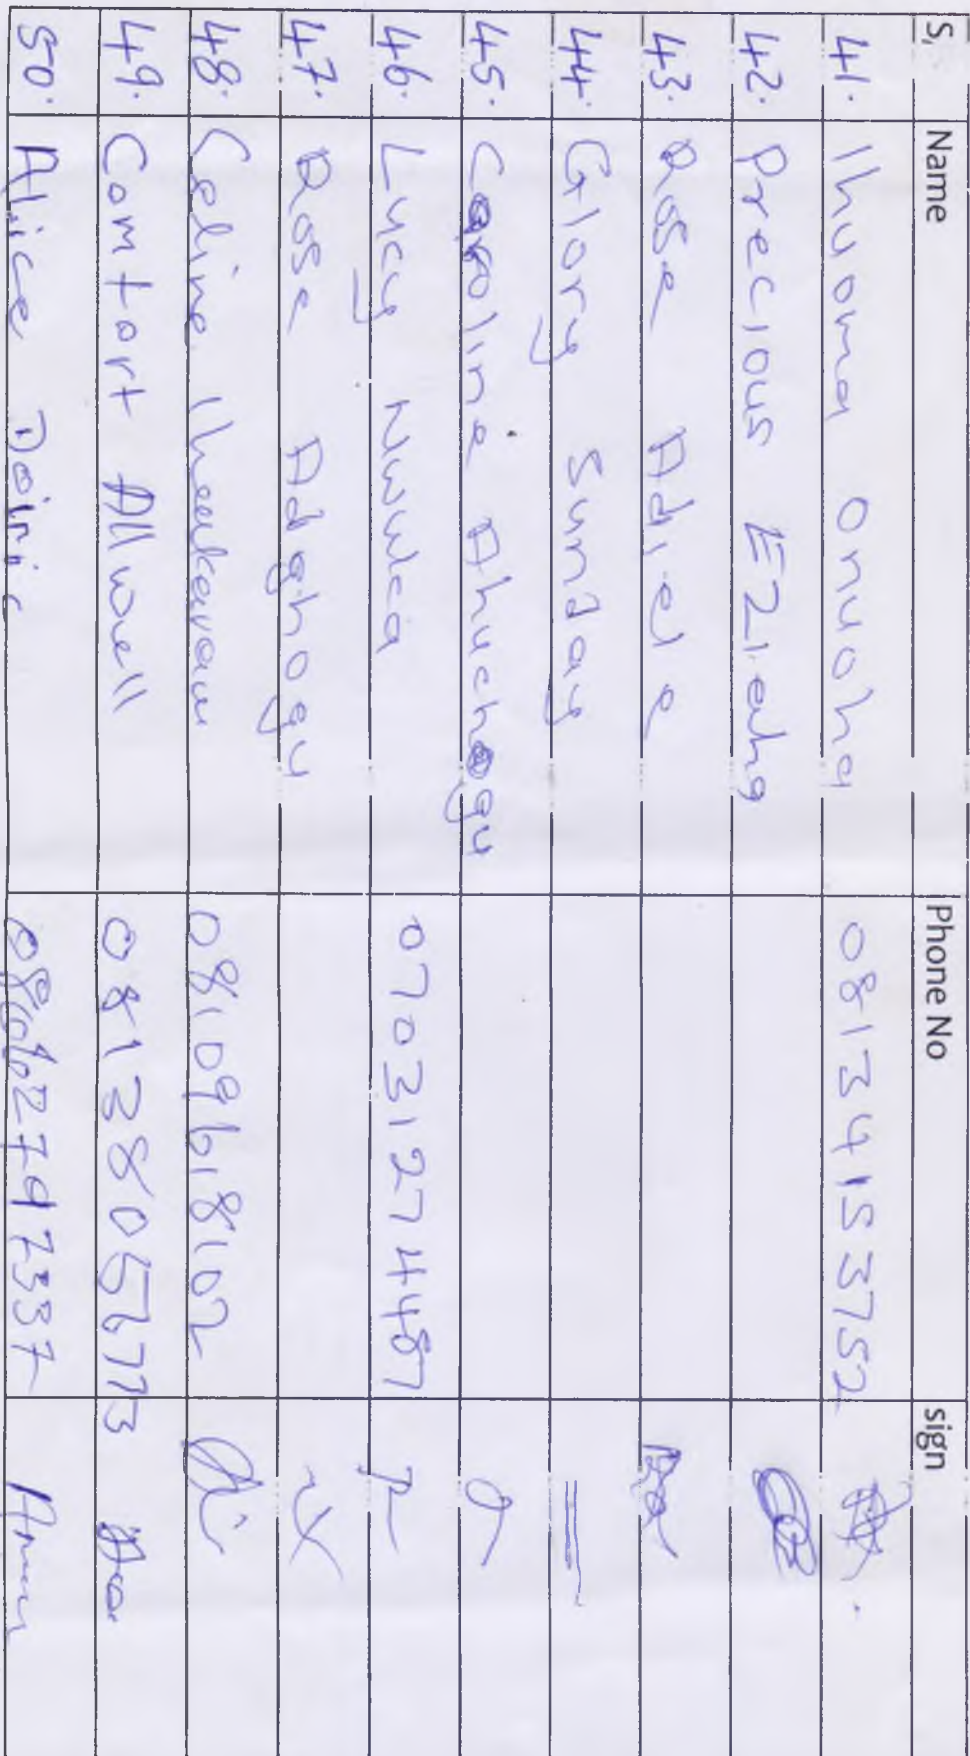 S, Name Phone No sign
41. Ihuoma Onuoha 08134153752
42. Precious Eziehg
43. Rose Adiele
44. Glory Sunday
45. Caroline Ahuchogu
46. Lucy Nwulea 07031274487
47. Rose Adeghogu
48. Celine 08109618102
49. Comfort Allwell 08138056773
50. Alice